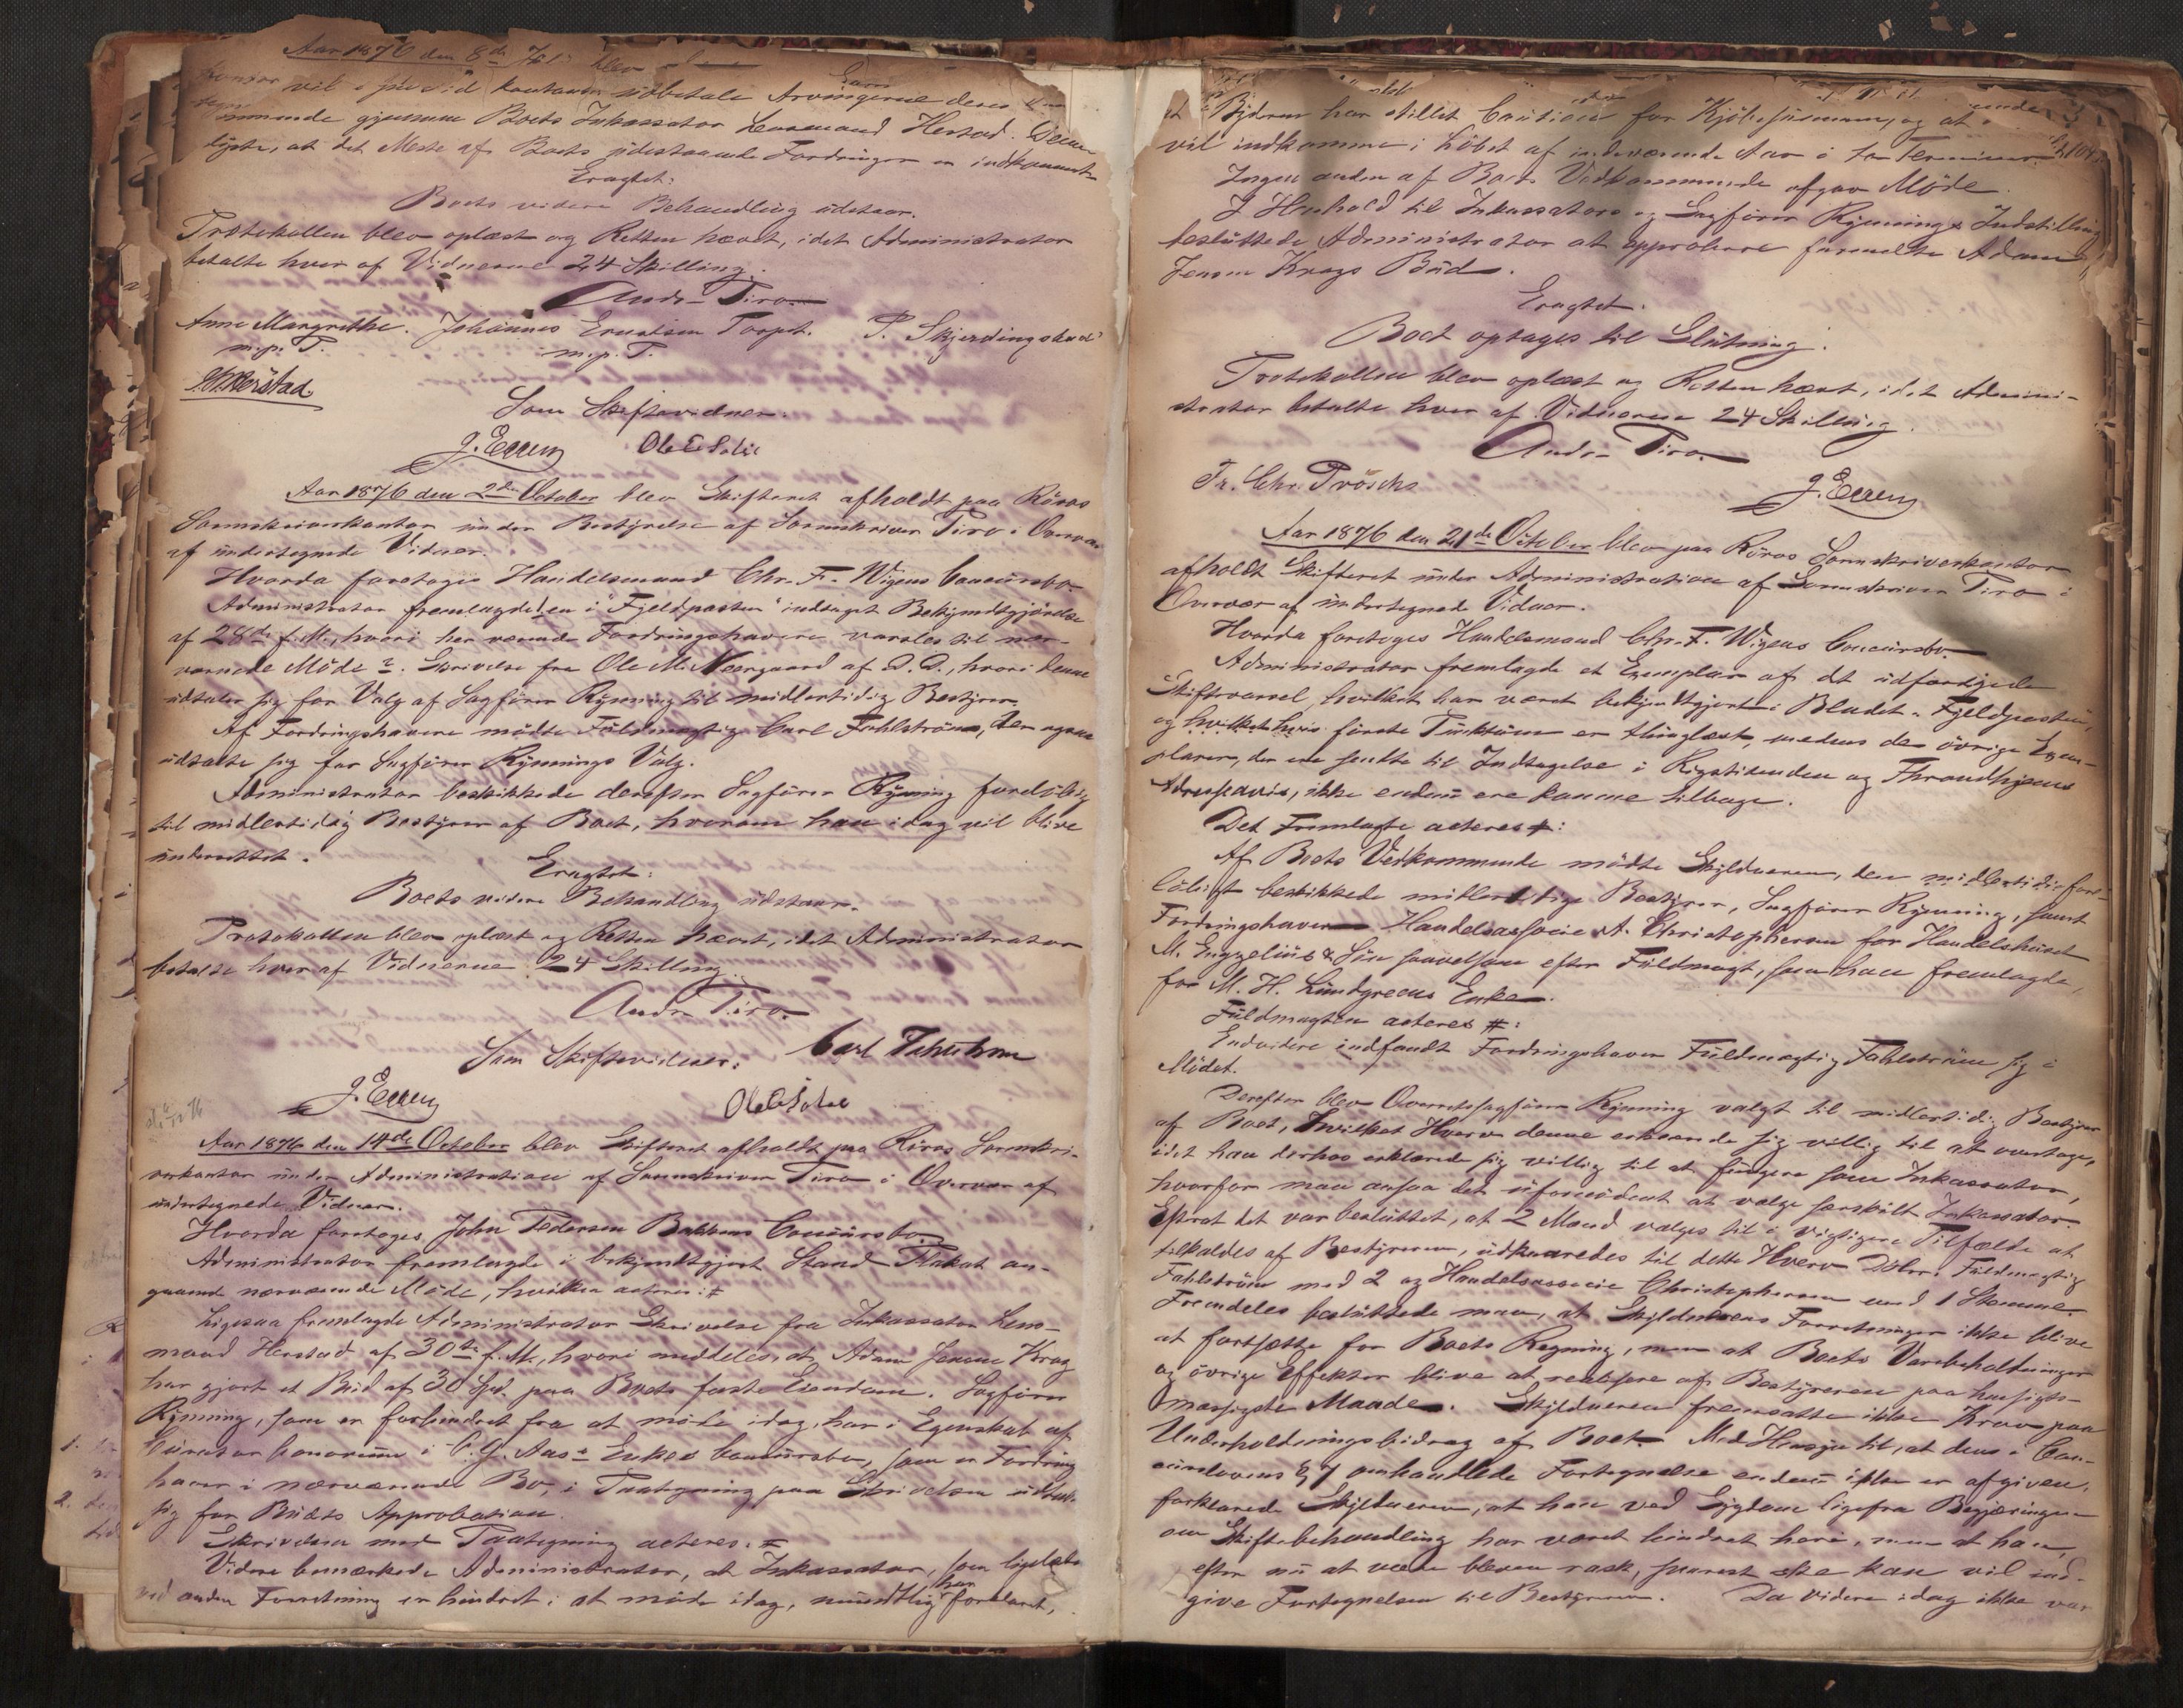 Aar 1876 den 8de blev
vil kontant udbetale Arvingerne deres
gjennem Boets Inkassator Lensmand Herstad. Denne
oplyste, at det Meste af Boets udestaaende Fordringer er indkommet.
Eragtet:
Boets videre Behandling udstaar.
Protokollen blev oplæst og Retten hævet, idet Administrator
betalte hver af Vidnerne 24 Skilling.
Andr. Tiro.
Anne Margrethe. Johannes Erntsen Torpet. P. Skjerdingstad
m.p. T. m.p. T.
Herstad
Som Skiftevidner:
J. Eggen Ole E Solie
Aar 1876 den 2den October blev Skifteret afholdt paa Röros
Sorenskriverkontor under Bestyrelse af Sorenskriver Tiro i Overvær
af undertegnede Vidner.
Hvorda foretoges Handelsmand Chr. F. Wigens Concursbo.
Administrator fremlagde 1, en i "Fjeldposten" indtaget Bekjendtgjörelse
af 28de f. M., hvori herværende Fordringshavere varsles til nær-
værende Möde 2. Skrivelse fra Ole M. Neergaard af D. D., hvori denne
udtaler sig for Valg af Sagförer Rynning til midlertidig Bestyrer.
Af Fordringshavere mödte Fuldmægtig Carl Fahlström, der ogsaa
udtalte sig for Sagförer Rynnings Valg.
Administrator beskikkede derefter Sagförer Rynning forelöbig
til midlertidig Bestyrer af Boet, hvorom han idag vil blive
underrettet.
Eragtet:
Boets videre Behandling udstaar.
Protokollen blev oplæst og Retten hævet, idet Administrator
betalte hver af Vidnerne 24 Skilling.
Andr. Tiro.
Som Skiftevidner: Carl Fahlström
J. Eggen Ole E Solie
Aar 1876 den 14de October blev Skifteret afholdt paa Röros Sorenskri-
verkontor under Administration af Sorenskriver Tiro i Overvær af
undertegnede Vidner.
Hvorda foretoges John Pedersen Bakkens Concursbo.
Administrator fremlagde i bekjendtgjort Stand Plakat an-
gaaende nærværende Möde, hvilken acteres: #
Ligesaa fremlagde Administrator Skrivelse fra Inkassator Lens-
mand Herstad af 30te f. M., hvori meddeles, at Adam Jensen Krog
har gjort et Bud af 30 Spd. paa Boets faste Eiendom. Sagförer
Rynning, som er forhindret fra at möde idag, har i Egenskab af
Curator bonorum i C. G. Aas's Enkes Concursbo, som er Fordrings-
haver i nærværende Bo, i Paategning paa Skrivelsen udtalt
sig for Budets Approbation.
Skrivelsen med Paategning acteres. #
Videre bemærkede Administrator, at Inkassator, som ligeledes
ved anden Forretning er hindret i at möde idag, mundtlig har forklaret,
at Byderen har stillet Caution for Kjöbesummen, og at
vil indkomme i Löbet af indeværende Aar i to Terminer.
Ingen anden af Boets Vedkommende afgav Möde.
I Henhold til Inkassators og Sagförer Rynnings Indstilling
besluttede Administrator at approbere formeldte Adam
Jensen Krogs Bud.
Eragtet.
Boet optages til Slutning.
Protokollen blev oplæst og Retten hævet, idet Admini-
strator betalte hver af Vidnerne 24 Skilling.
Andr. Tiro.
Fr. Chr. Prösch J. Eggen
Aar 1876 den 21de October blev paa Röros Sorenskriverkontor
afholdt Skifteret under Administration af Sorenskriver Tiro i
Overvær af undertegnede Vidner.
Hvorda foretoges Handelsmand Chr. F. Wigens Concursbo.
Administrator fremlagde et Exemplar af det udfærdigede
Skiftevarsel, hvilket har været bekjendtgjort i Bladet "Fjeldposten",
og hvilket hvis förste Punktum er thinglæst, medens de övrige Exem-
plarer, der ere sendte til Indtagelse i Rigstidenden og Throndhjems
Adresseavis, ikke endnu ere komne tilbage.
Det Fremlagte acteres #:
Af Boets Vedkommende mödte Skyldneren, den midlertidig fore-
löbigt beskikkede midlertidige Bestyrer, Sagförer Rynning, samt
Fordringshaverne Handelsassocie A. Christophersen for Handelshuset
M. Engzelius & Sön saavelsom efter Fuldmagt, som han fremlagde,
for M. H. Lundgreens Enke.
Fuldmagten acteres #:
Endvidere indfandt Fordringshaver Fuldmægtig Fahlström sig i
Mödet.
Derefter blev Overretssagförer Rynning valgt til midlertidig Bestyrer
af Boet, hvilket Hverv denne erklærede sig villig til at overtage,
idet han derhos erklærede sig villig til at fungere som Inkassator,
hvorfor man ansaa det ufornödent at vælge særskilt Inkassator.
Efterat det var besluttet, at 2 Mænd vælges til i vigtigere Tilfælde at
tilkaldes af Bestyreren, udkaaredes til dette Hverv DHrr. Fuldmægtig
Fahlström med 2 og Handelsassocie Christophersen med 1 Stemme.
Fremdeles besluttede man, at Skyldnerens Forretninger ikke blive
at fortsætte for Boets Regning, men at Boets Varebeholdninger
og övrige Effekter blive at realisere af Bestyreren paa hensigts-
mæssigste Maade. Skyldneren fremsatte ikke Krav paa
Underholdningsbidrag af Boet. Med Hensyn til, at den i Con-
curslovens § 7 omhandlede Fortegnelse endnu ikke er afgiven,
forklarede Skyldneren, at han ved Sygdom ligefra Begjæringen
om Skiftebehandling har været hindret heri, men at han,
efter nu at være bleven rask, snarest ske kan vil ind-
give Fortegnelsen til Bestyreren. Da videre idag ikke var